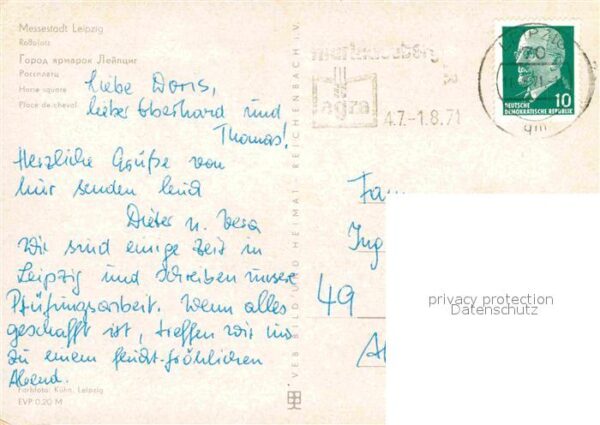 Messestadt Leipzig
Roßplatz
Город ярмарок Лейпциг
Россплац
Horse square
Place de cheval
Liebe Doris,
lieber Eberhard und
Thomas!
Herzliche Grüße von
hier senden Euch
Dieter u. Vera
Wir sind einige Zeit in
Leipzig und schreiben unsere
Prüfungsarbeit. Wenn alles
geschafft ist, treffen wir uns
zu einem feucht-fröhlichen
Abend.
Farbfoto: Kühn, Leipzig
EVP 0,20 M
VEB BILD UND HEIMAT REICHENBACH i.V.
markkleeberg
agra
4.7.-1.8.71
LEIPZIG
DEUTSCHE
DEMOKRATISCHE REPUBLIK
10
Fam
Ing
49
privacy protection
Datenschutz